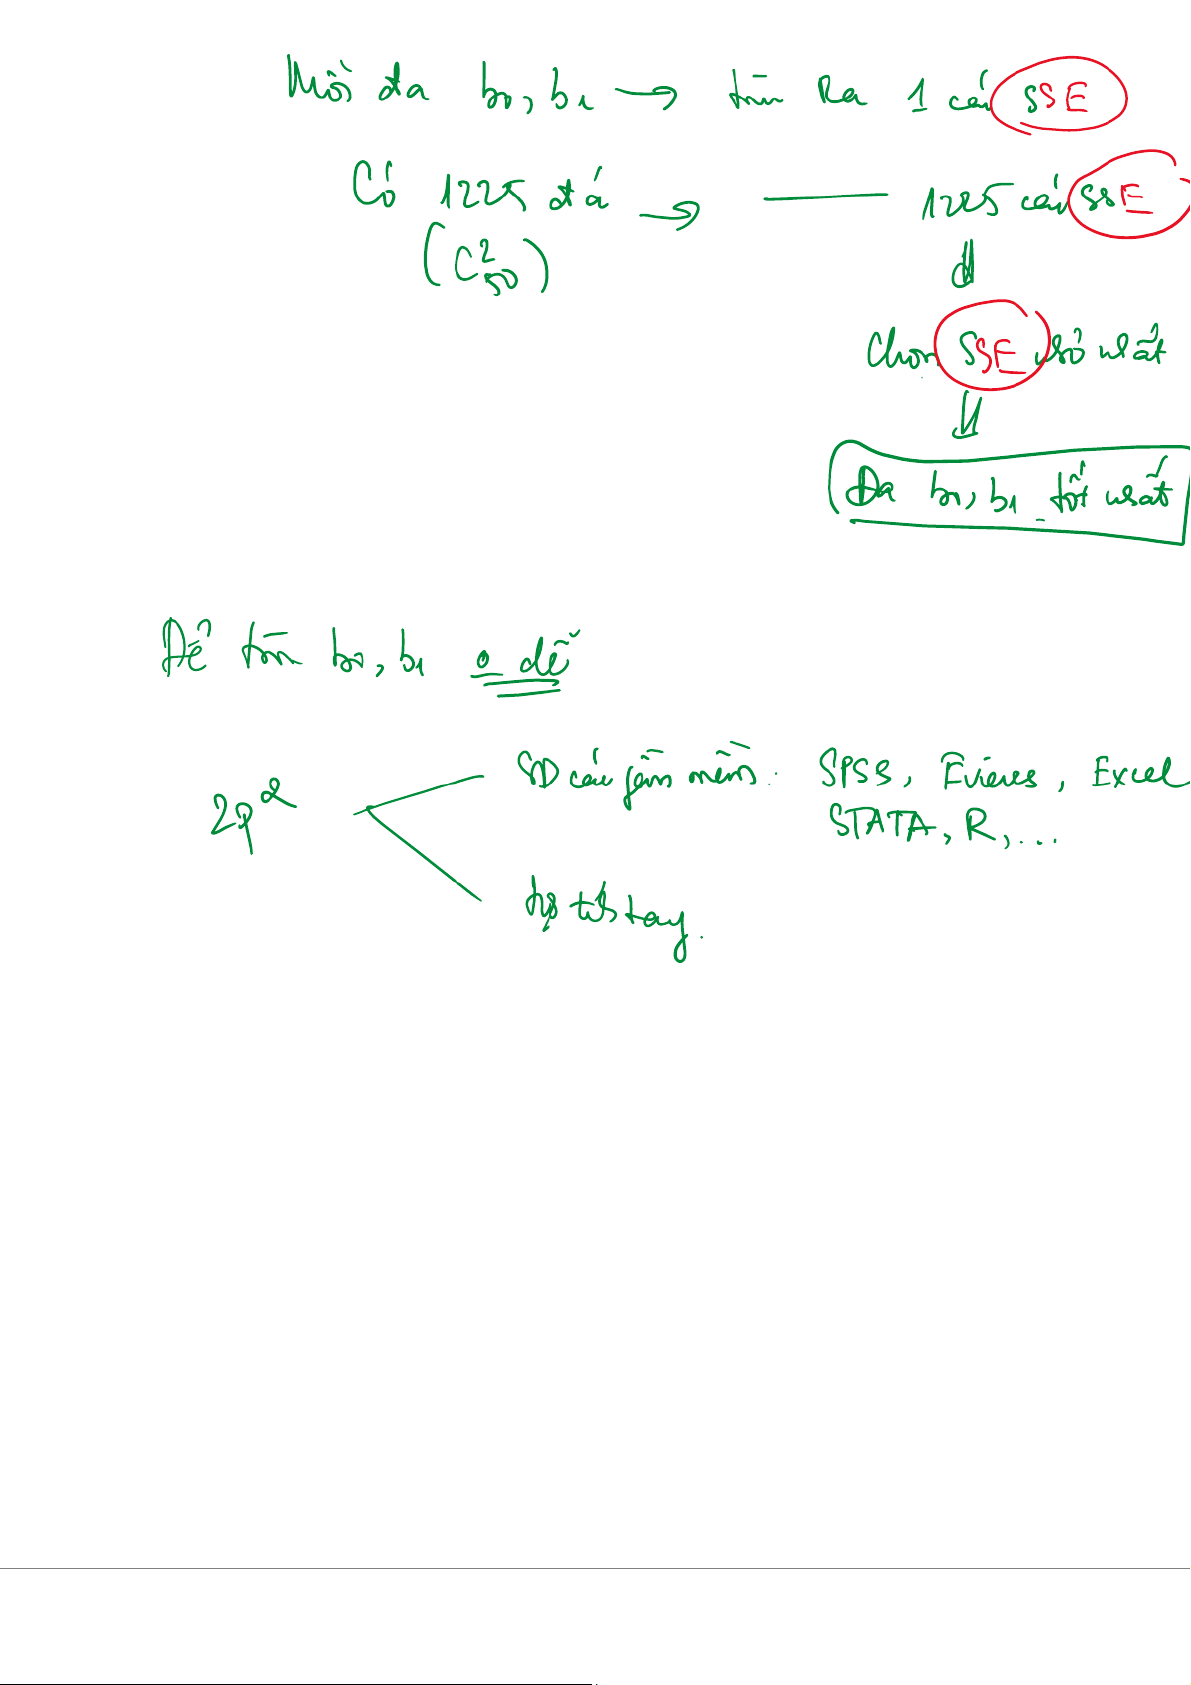 Mỗi đa b₀, b₁ → tìm Ra 1 cái SSE
Có 1225 đá → —— 1225 cái SSE
(C²₅₀)
Chọn SSE nhỏ nhất
Đa b₀, b₁ tốt nhất
Để tìm b₀, b₁ o dễ
2p² SD các fần mềm: SPSS, Eviews, Excel
STATA, R, ...
tay.